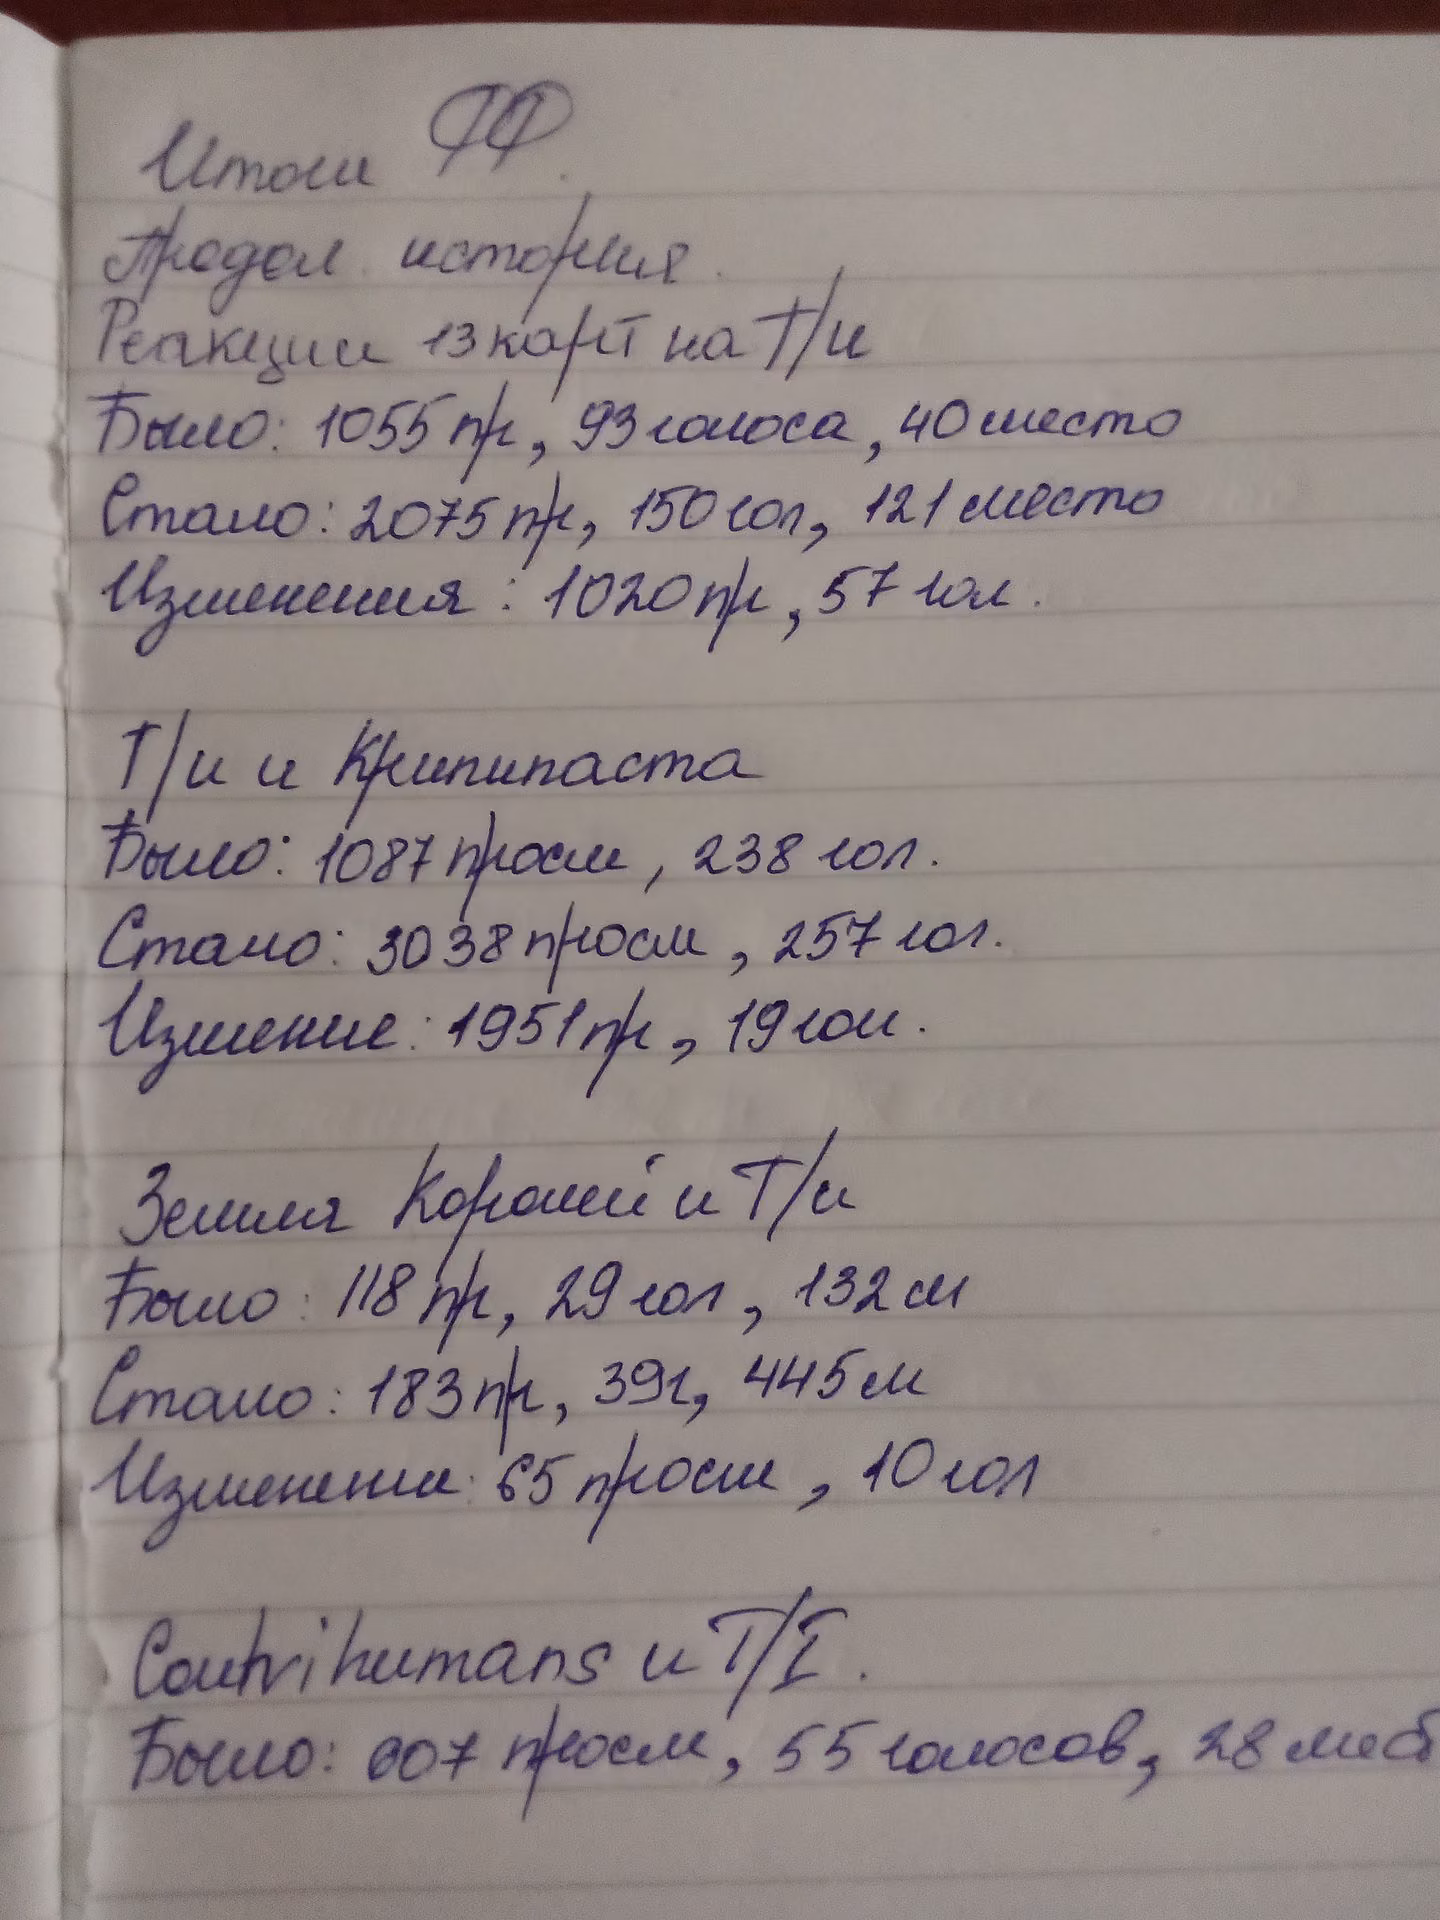 Итоги ФФ.
Продол история.
Реакции 13 карт на Т/и
Было: 1055 пр, 93 голоса, 40 место
Стало: 2075 пр, 150 гол, 121 место
Изменения: 1020 пр, 57 гол.
Т/и и Крипипаста
Было: 1087 просм, 238 гол.
Стало: 3038 просм, 257 гол.
Измение: 1951 пр, 19 гол.
Земля Королей и Т/и
Было: 118 пр, 29 гол, 132 м
Стало: 183 пр, 39 г, 445 м
Изменени: 65 просм, 10 гол
и Т/I.
Было: 607 просм, 55 голосов, 28 мест